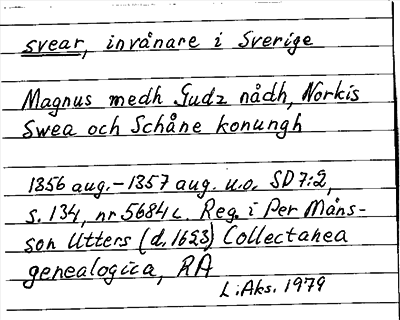 svear, invånare i Sverige
Magnus medh Gudz nådh, Norkis
Swea och Schåne konungh
1356 aug.-1357 aug. u.o. SD 7:2,
s. 134, nr 5684 c. Reg. i Per Måns-
son Utters (d. 1623) Collectanea
genealogica, RA
L:Aks. 1979